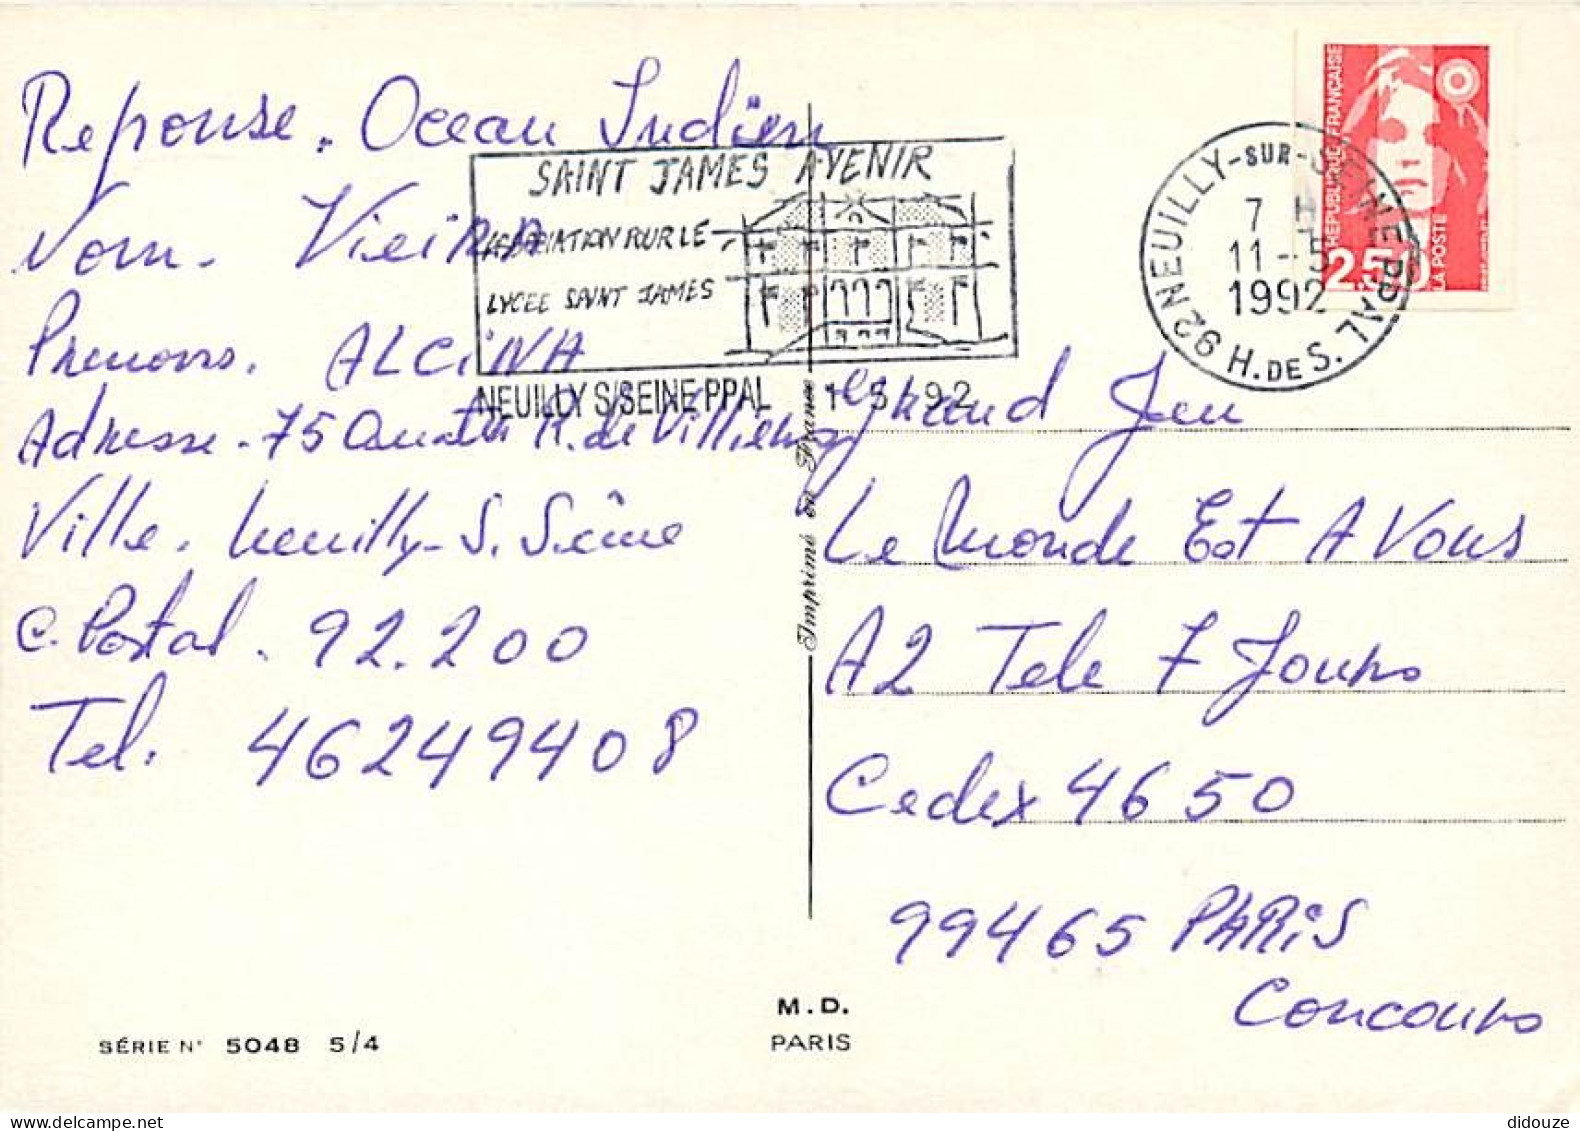 Reponse. Ocean Indien
Nom. Vieira
Prenoms. ALCiNA
Adresse. 75 R. de Villiers
Ville. Neuilly-S. Seine
C. Postal. 92.200
Tel. 46249408
SAINT JAMES AVENIR
ASSOCIATION POUR LE
LYCEE SAINT JAMES
NEUILLY S/SEINE PPAL 1-5 92
NEUILLY-SUR-SEINE PPAL
7 H
11-5
1992
92 H. DE S.
REPUBLIQUE FRANÇAISE
2.50
LA POSTE
Grand Jeu
Le Monde Est A Vous
A2 Tele 7 Jours
Cedex 4650
99465 PARiS
Concours
Imprimé en France
M.D.
PARIS
SÉRIE N° 5048 5/4
didouze